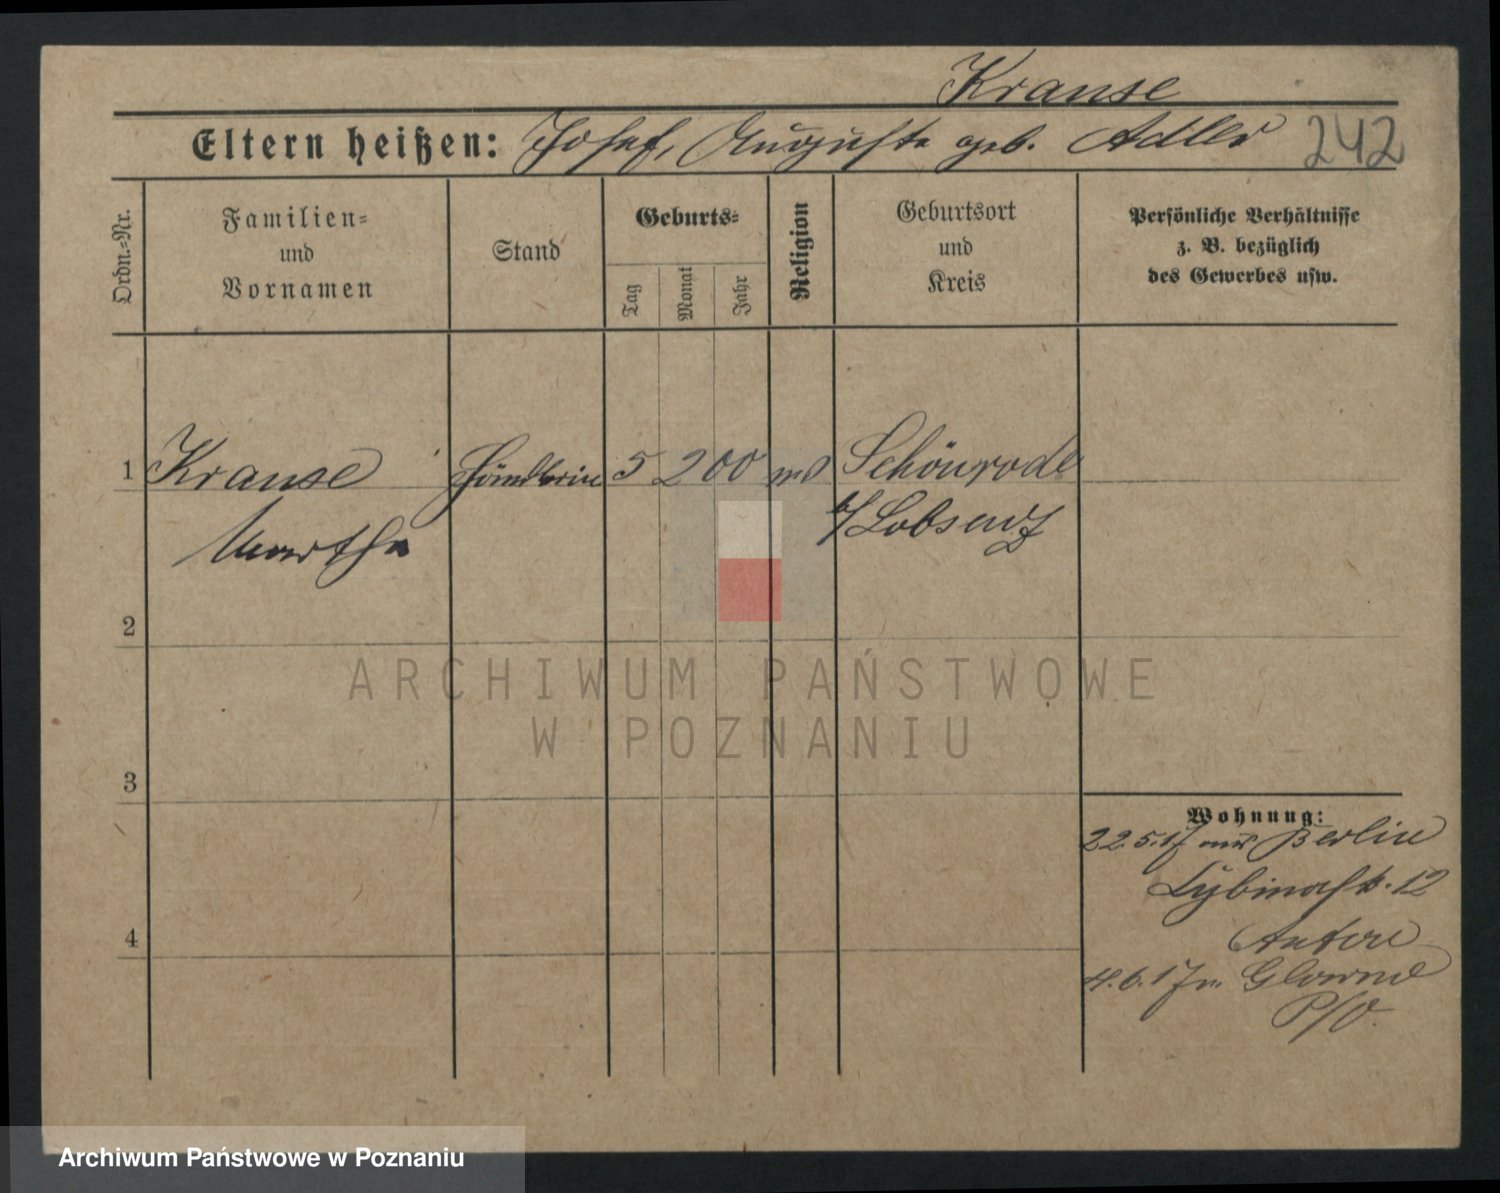 Krause
Eltern heißen: Josef, Auguste geb. Adler 242
Ordn.-Nr.
Familien-
und
Vornamen
Stand
Geburts-
Tag
Monat
Jahr
Religion
Geburtsort
und
Kreis
Persönliche Verhältnisse
z. B. bezüglich
des Gewerbes usw.
1 Krause Händlerin 5 2 00 Schönrode
Martha b/Lobsenz
2
3
4
Wohnung:
22.5.17 aus Berlin
12
4.6.17 n. Glowno
P/O.
ARCHIWUM PAŃSTWOWE
W POZNANIU
Archiwum Państwowe w Poznaniu